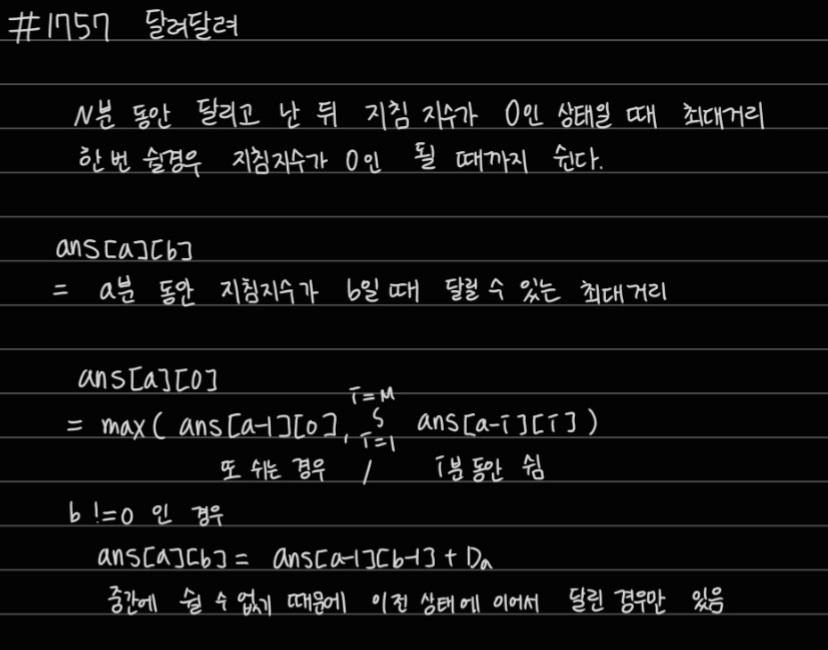 #1757 달려달려
N분 동안 달리고 난 뒤 지침 지수가 0인 상태일 때 최대거리
한번 쉴경우 지침지수가 0인 될 때까지 쉰다.
ans[a][b]
= a분 동안 지침지수가 b일 때 달릴 수 있는 최대거리
ans[a][0]
i=M
= max( ans[a-1][0], S ans[a-i][i] )
i=1
또 쉬는 경우 / i분 동안 쉼
b != 0 인 경우
ans[a][b] = ans[a-1][b-1] + Da
중간에 쉴 수 없기 때문에 이전 상태에 이어서 달린 경우만 있음